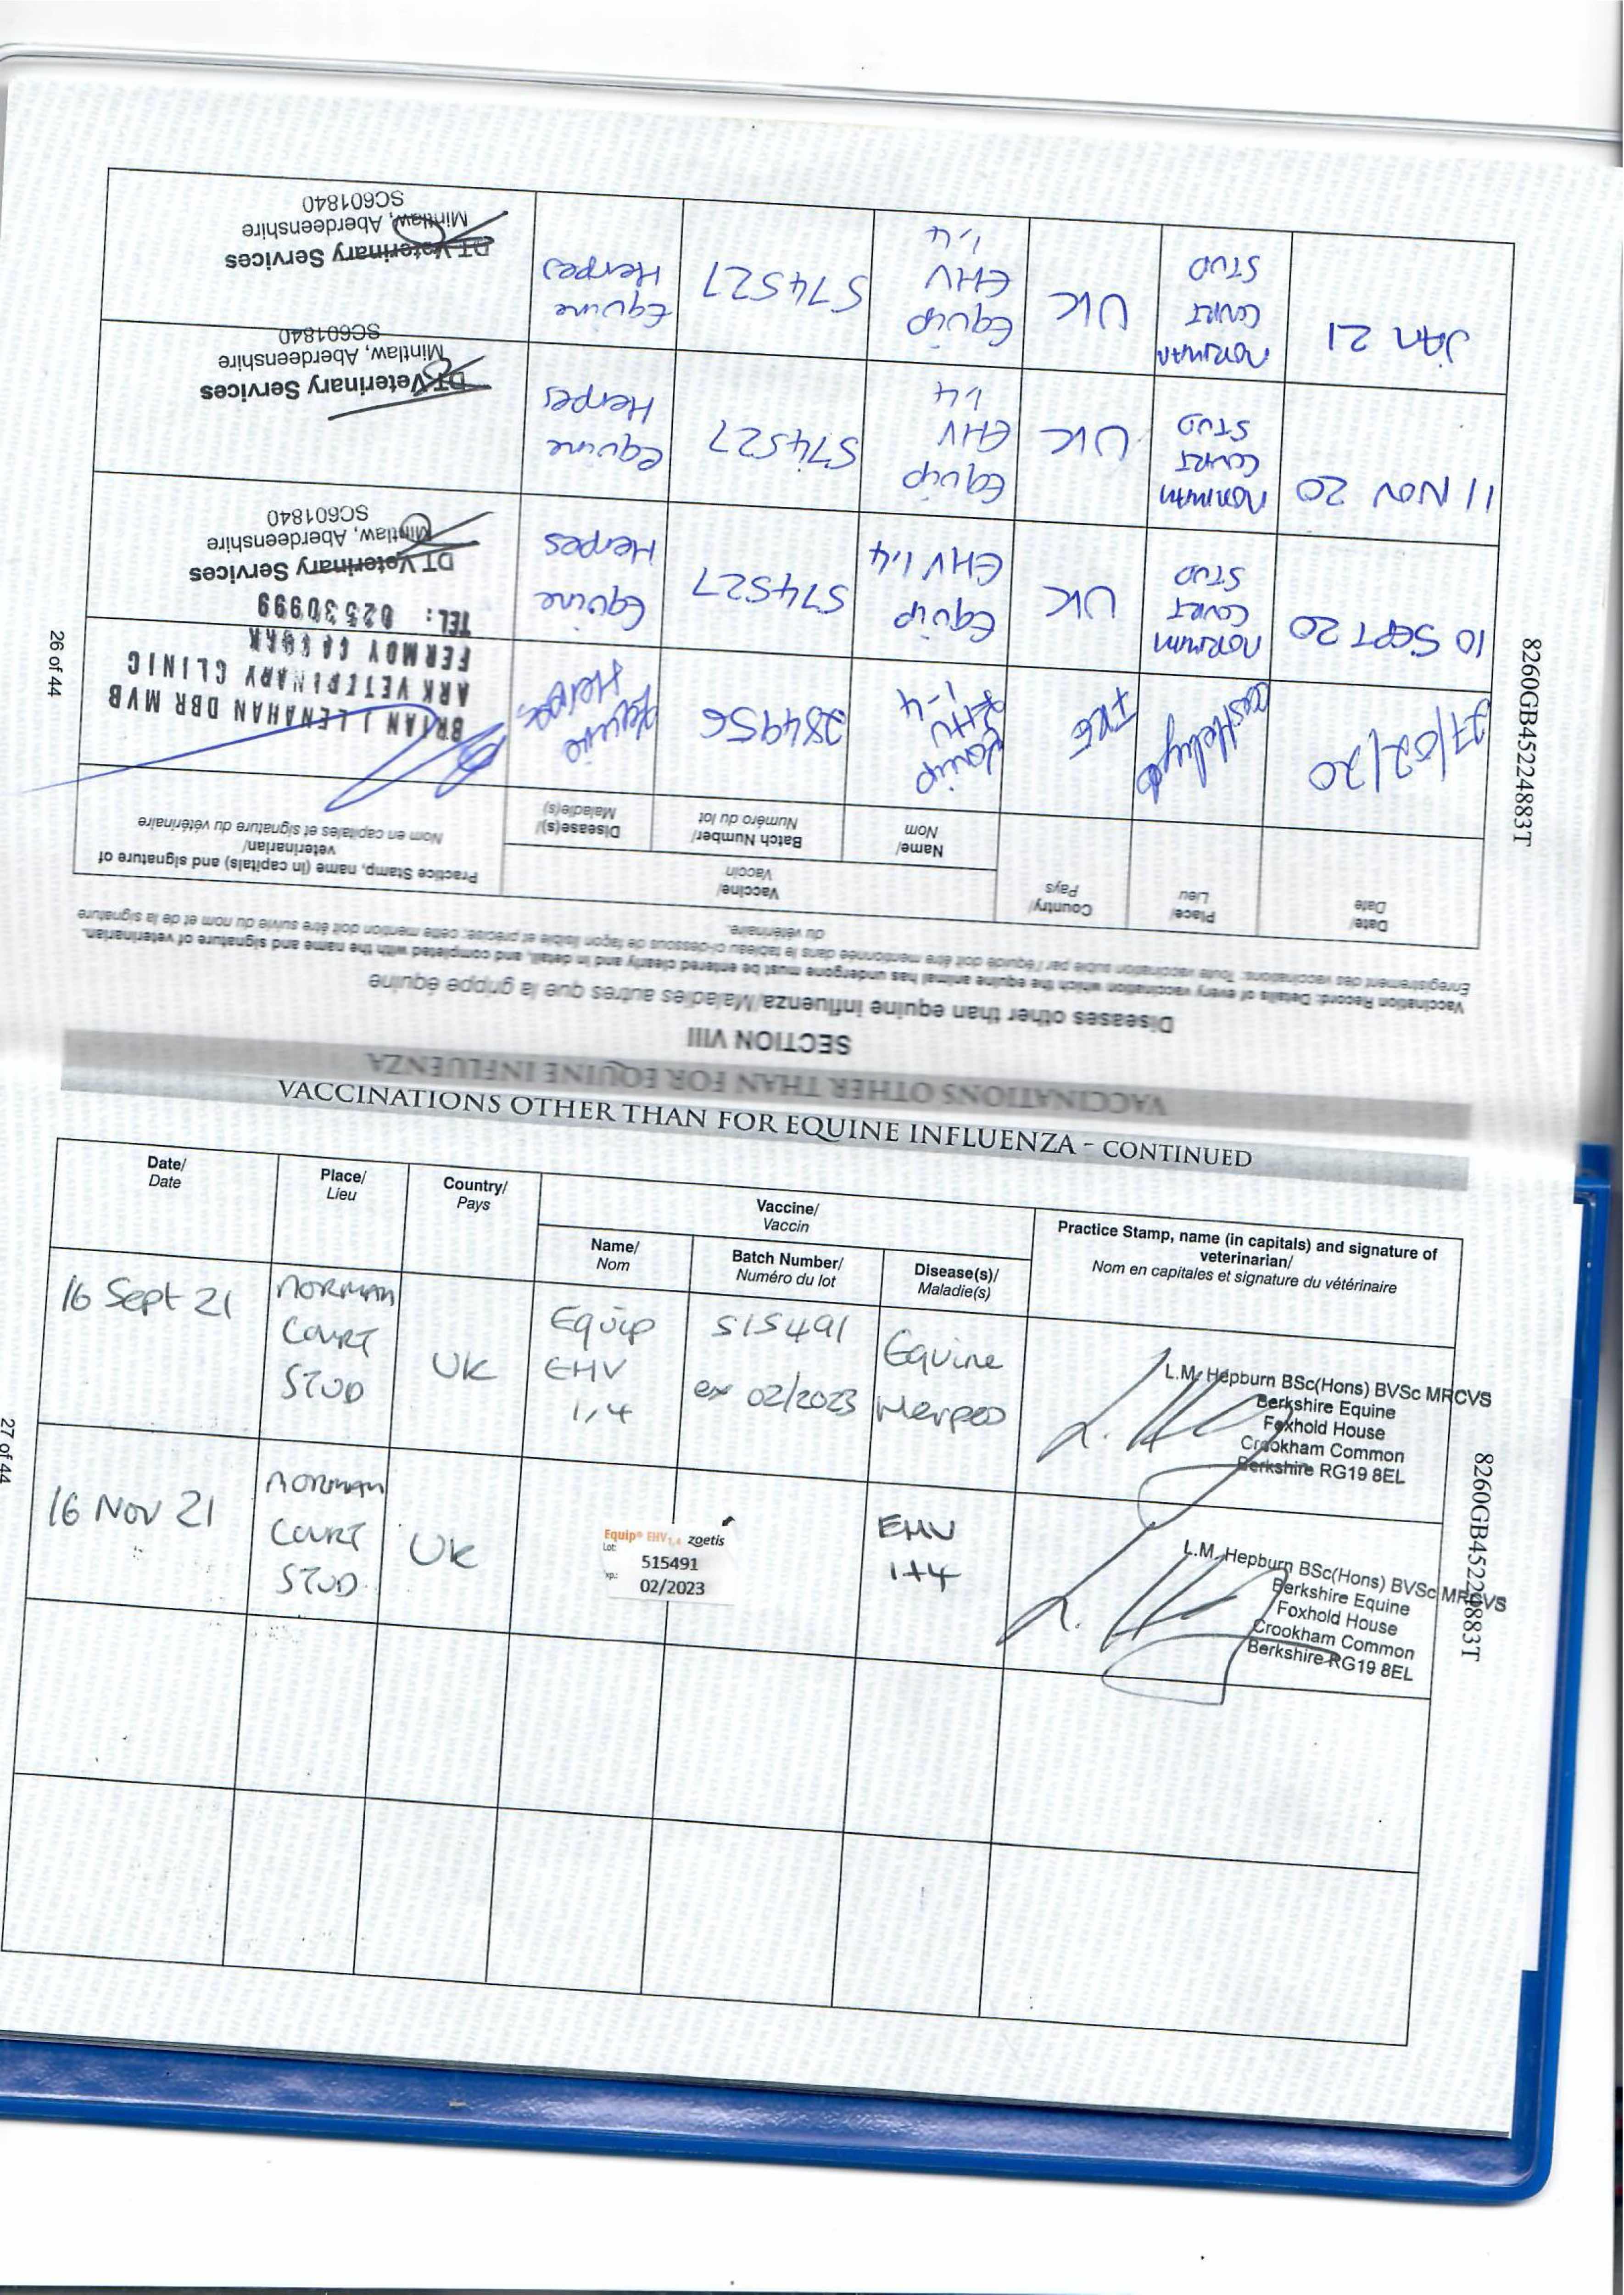 VACCINATIONS OTHER THAN FOR EQUINE INFLUENZA
SECTION VIII
Diseases other than equine influenza/Maladies autres que la grippe équine
Vaccination Record: Details of every vaccination which the equine animal has undergone must be entered clearly and in detail, and completed with the name and signature of veterinarian.
Enregistrement des vaccinations: Toute vaccination subie par l'équidé doit être mentionnée dans le tableau ci-dessous de façon lisible et précise; cette mention doit être suivie du nom et de la signature
du vétérinaire.
Date/
Date
Place/
Lieu
Country/
Pays
Vaccine/
Vaccin
Name/
Nom
Batch Number/
Numéro du lot
Disease(s)/
Maladie(s)
Practice Stamp, name (in capitals) and signature of
veterinarian/
Nom en capitales et signature du vétérinaire
27/02/20
IRE
Equip
EHV
1-4
284956
Equine
Herpes
BRIAN J LENAHAN DBR MVB
ARK VETERINARY CLINIC
FERMOY CO CORK
TEL: 02530999
10 SEPT 20
NORMAN
COURT
STUD
UK
Equip
EHV 1,4
574527
Equine
Herpes
DT Veterinary Services
Mintlaw, Aberdeenshire
SC601840
11 NOV 20
NORMAN
COURT
STUD
UK
Equip
EHV
1,4
574527
Equine
Herpes
DT Veterinary Services
Mintlaw, Aberdeenshire
SC601840
JAN 21
NORMAN
COURT
STUD
UK
Equip
EHV
1,4
574527
Equine
Herpes
DT Veterinary Services
Mintlaw, Aberdeenshire
SC601840
26 of 44
8260GB45224883T
VACCINATIONS OTHER THAN FOR EQUINE INFLUENZA - CONTINUED
Date/
Date
Place/
Lieu
Country/
Pays
Vaccine/
Vaccin
Name/
Nom
Batch Number/
Numéro du lot
Disease(s)/
Maladie(s)
Practice Stamp, name (in capitals) and signature of
veterinarian/
Nom en capitales et signature du vétérinaire
16 Sept 21
NORMAN
COURT
STUD
UK
Equip
EHV
1,4
515491
ex 02/2023
Equine
Herpes
L.M. Hepburn BSc(Hons) BVSc MRCVS
Berkshire Equine
Foxhold House
Crookham Common
Berkshire RG19 8EL
16 NOV 21
NORMAN
COURT
STUD
UK
Equip® EHV 1,4 zoetis
Lot:
515491
xp.:
02/2023
EHV
1+4
L.M. Hepburn BSc(Hons) BVSc MRCVS
Berkshire Equine
Foxhold House
Crookham Common
Berkshire RG19 8EL
27 of 44
8260GB45224883T